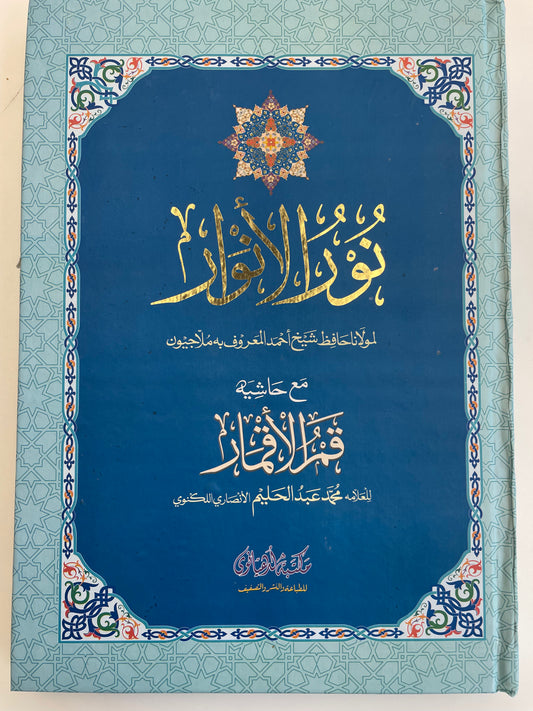 نُوْرُ الأَنْوَار
لمولانا حافظ شيخ أحمد المعروف به ملاجيون
مع حاشيه
قمر الأقمار
للعلامه محمد عبد الحليم الأنصاري اللكنوي
مكتبة لدهيانوي
للطباعة والنشر والتصنيف